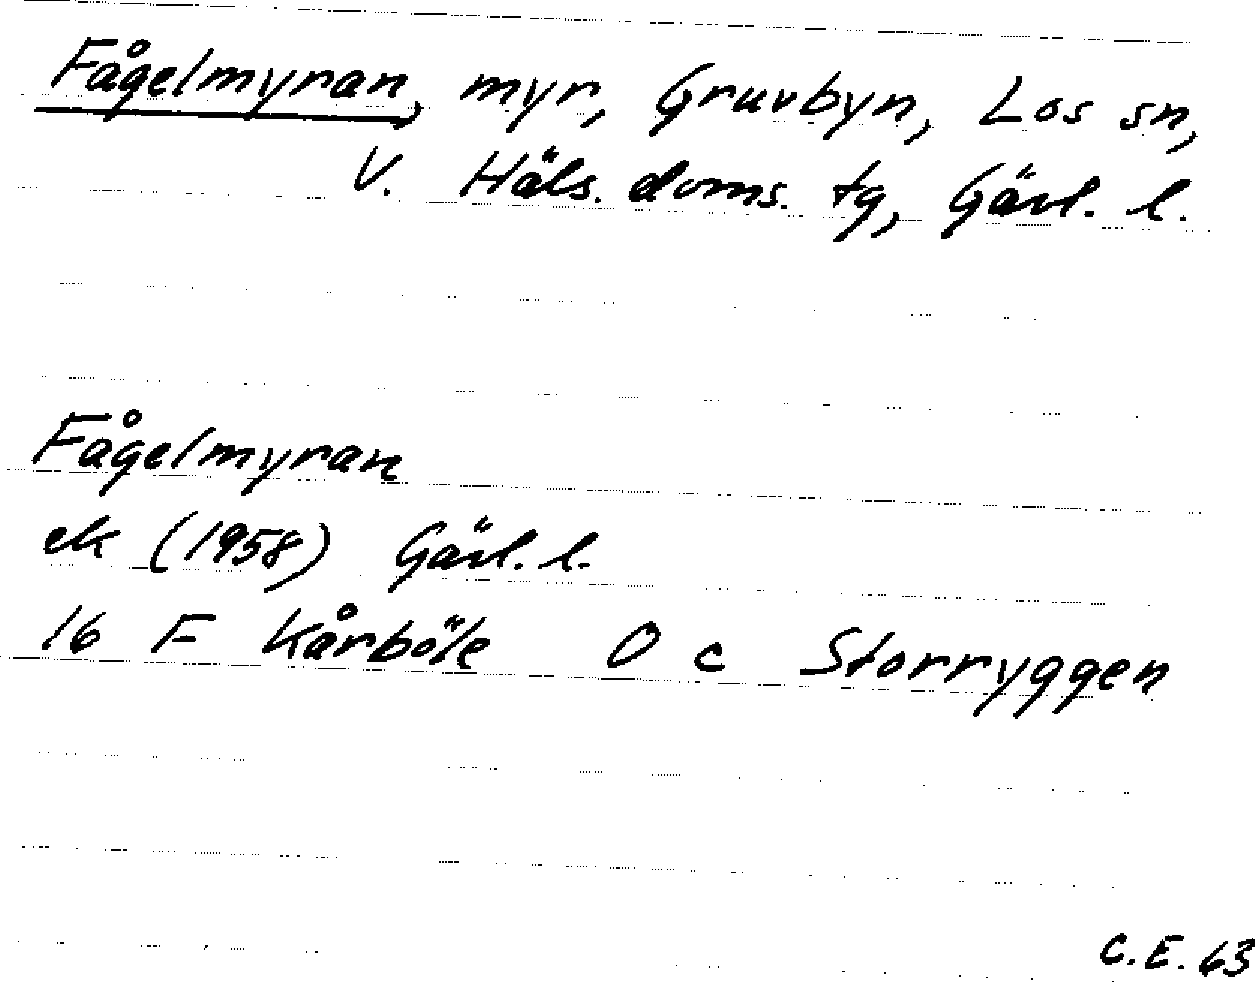 Fågelmyran, myr, Gruvbyn, Los sn,
V. Häls. doms. tg, Gävl. l.
Fågelmyran
ek (1958) Gävl. l.
16 F Kårböle O c Storryggen
C.E. 63